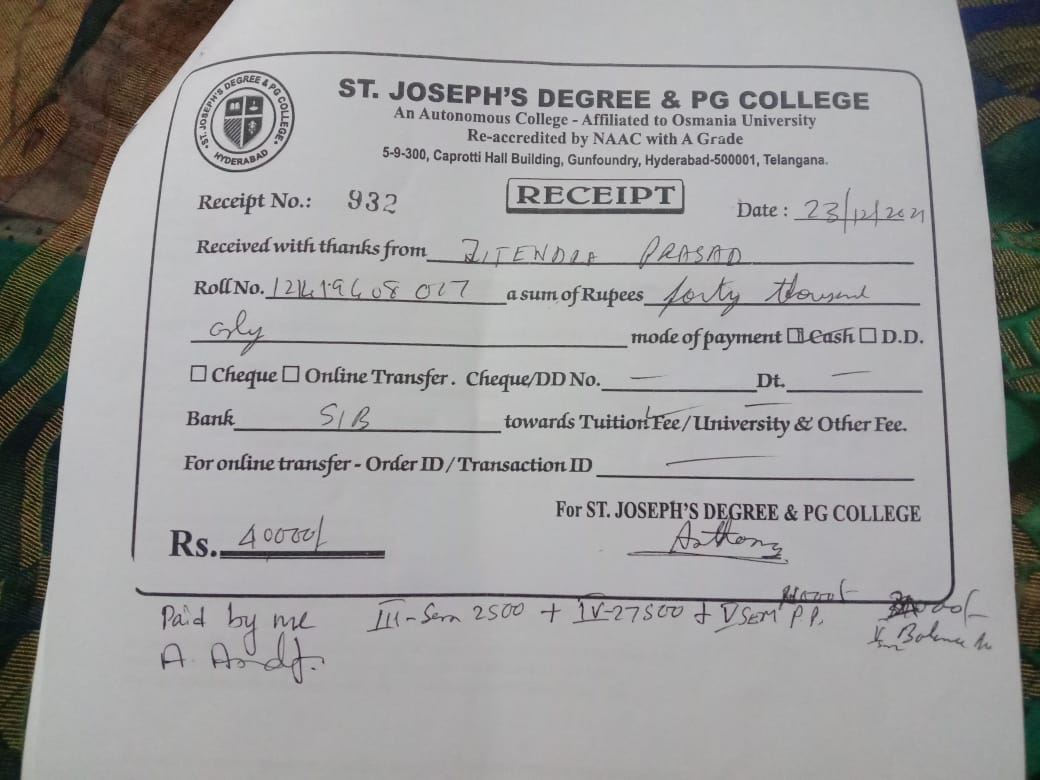 ST. JOSEPH'S DEGREE & PG COLLEGE HYDERABAD
ST. JOSEPH'S DEGREE & PG COLLEGE
An Autonomous College - Affiliated to Osmania University
Re-accredited by NAAC with A Grade
5-9-300, Caprotti Hall Building, Gunfoundry, Hyderabad-500001, Telangana.
Receipt No.: 932 RECEIPT Date : 23/12/2021
Received with thanks from JITENDRA PRASAD
Roll No. a sum of Rupees forty thousand
only mode of payment Cash D.D.
Cheque Online Transfer. Cheque/DD No. — Dt. —
Bank SIB towards Tuition Fee/University & Other Fee.
For online transfer - Order ID/Transaction ID —
For ST. JOSEPH'S DEGREE & PG COLLEGE
Rs. 40000/- Anthony
Paid by me III-Sem 2500 + IV-27500 + V SEM P.P.
A. Balance